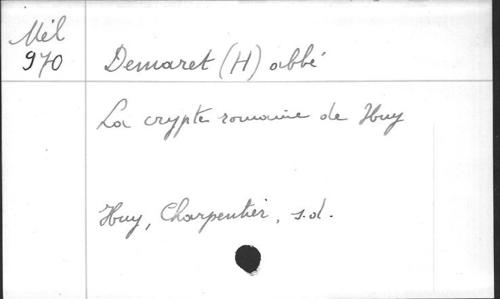 Mél
970
Demaret (H) abbé
La crypte romaine de Huy
Huy, Charpentier, s.d.